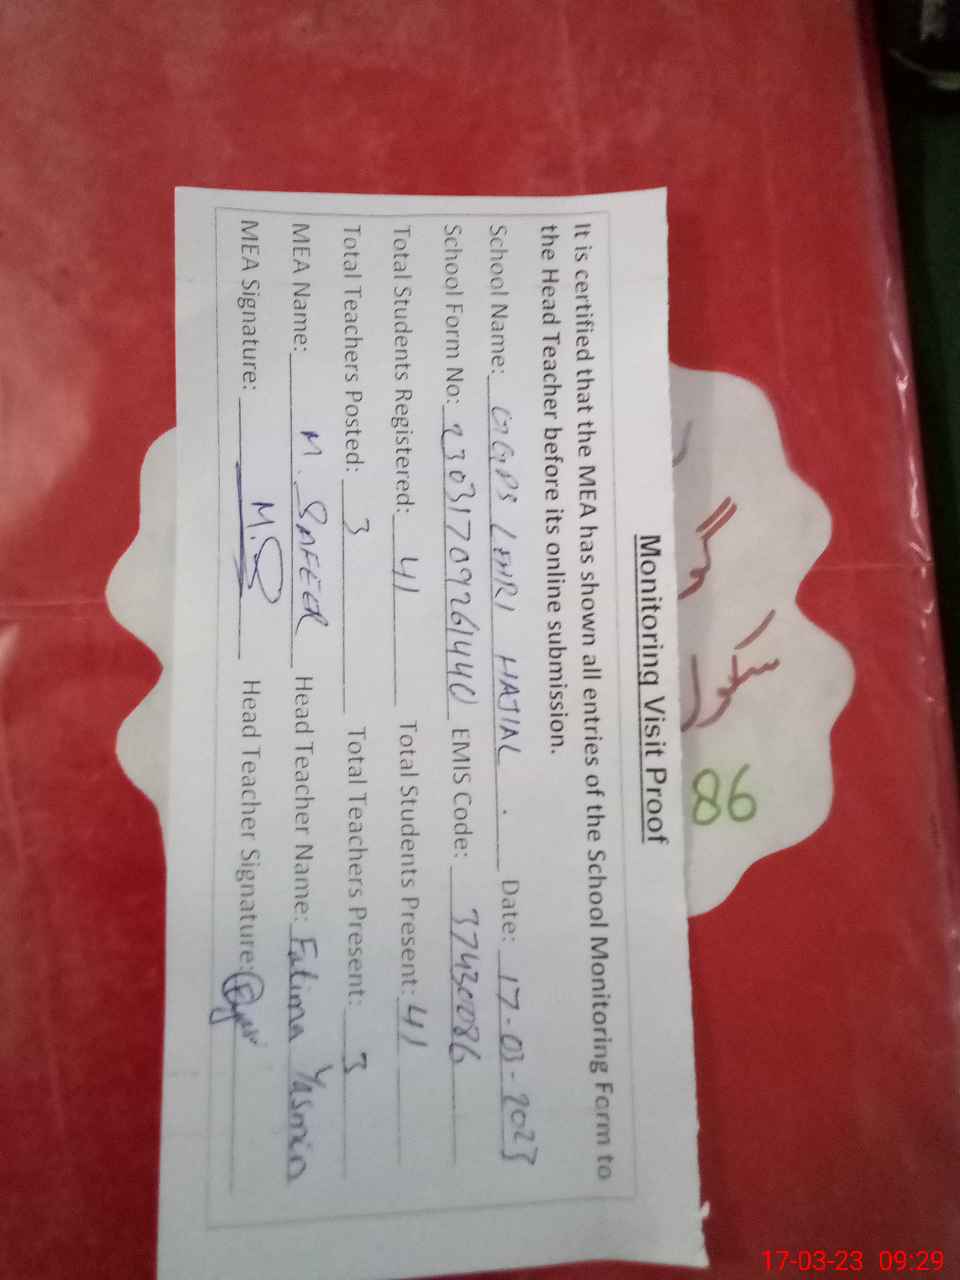 Monitoring Visit Proof
It is certified that the MEA has shown all entries of the School Monitoring Form to
the Head Teacher before its online submission.
School Name: GGPS LEHRI HAJIAL . Date: 17-03-2023
School Form No: 23031709261440 EMIS Code: 37430086
Total Students Registered: 41 Total Students Present: 41
Total Teachers Posted: 3 Total Teachers Present: 3
MEA Name: M. SAFEER Head Teacher Name: Fatima Yasmin
MEA Signature: M.S Head Teacher Signature:
17-03-23 09:29